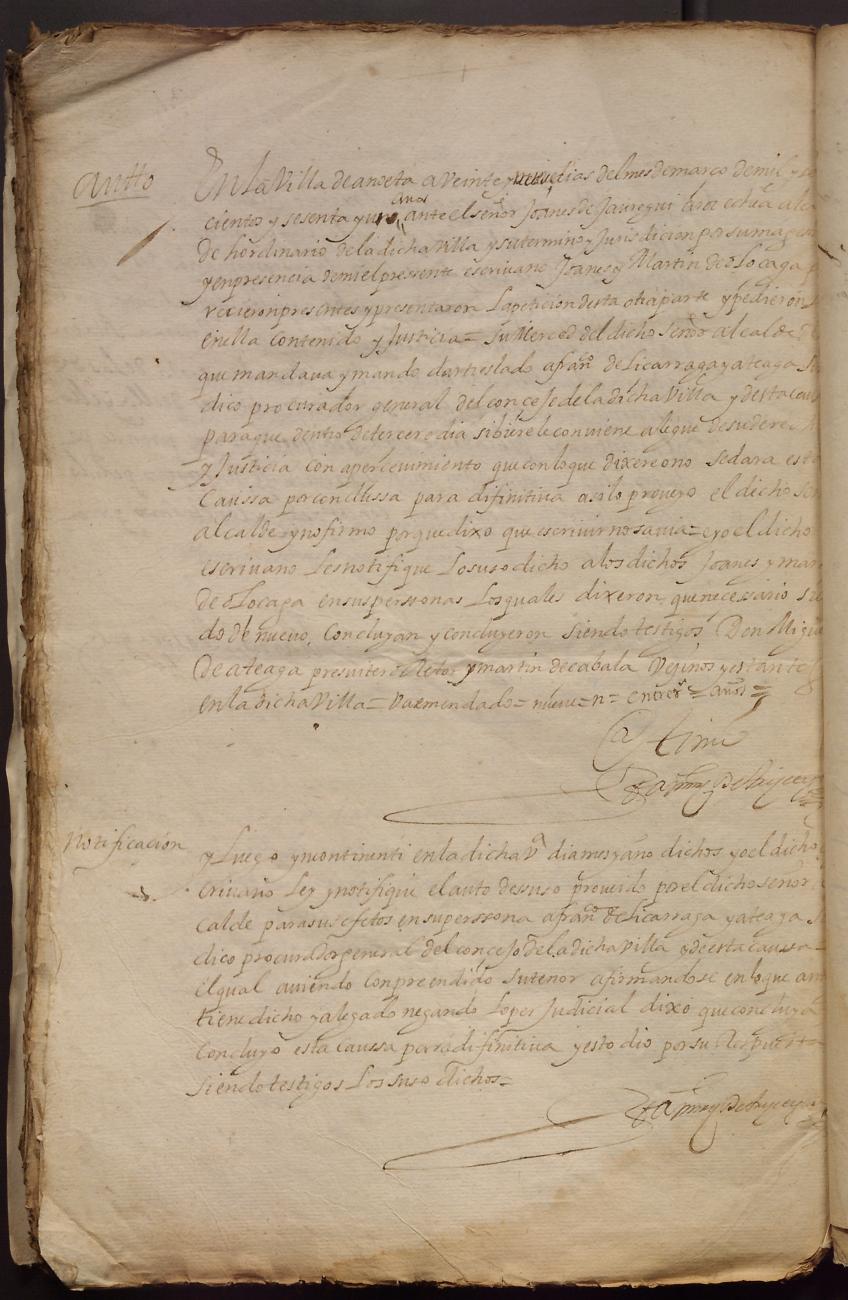 Autto
En la Villa de anoeta a Veinte y nueve dias del mes de março de mil y se
ciento y sesenta y uno años ante el señor Joanes de Jauregui
de hordinario de la dicha Villa y su termino y Jurisdicion por su mag
y en presencia de mi el pressente escrivano Joanes y Martin de olocaga p
recieron presentes y presentaron la peticion desta otra parte y pidieron
en ella contenido y Justicia = su Merced del dicho señor alcalde
que mandava y mando dar treslado a fran.co de licarraga y ateaga Sin
dico procurador general del concejo de la dicha Villa y desta caus
para que dentro de tercero dia si biere le conviene alegue de su derech
y Justicia con apercevimiento que con lo que dixere o no se dara esta
Caussa por conclussa para difinitiva asi lo proveyo el dicho señ
alcalde y no firmo porque dixo que escrivir no savia = e yo el dicho
escrivano les notifique lo suso dicho a los dichos Joanes y mar
de olocaga en sus perssonas los quales dixeron que necessario si
do de nuevo concluyan y concluyeron siendo testigos Don Migu
de ateaga presvitero Retor y martin de cabala Vezinos y estantes
en la dicha Villa = va emendado = nueve = n = entrer.s = años =
Notificación
y luego yncontinenti en la dicha V.a dia mes y año dichos yo el dicho es
crivano ley y notifique el auto de ssuso proveido por el dicho señor al
calde para sus efetos en su perssona a fran.co de licarraga y ateaga Sin
dico procurador general del concejo de la dicha Villa y de esta caussa
el qual aviendo conpreendido su tenor afirmandose en lo que an
tiene dicho y alegado negando lo perjudicial dixo que concluya
concluyo esta caussa para difinitiva y esto dio por su Respuesta
siendo testigos los suso dichos =